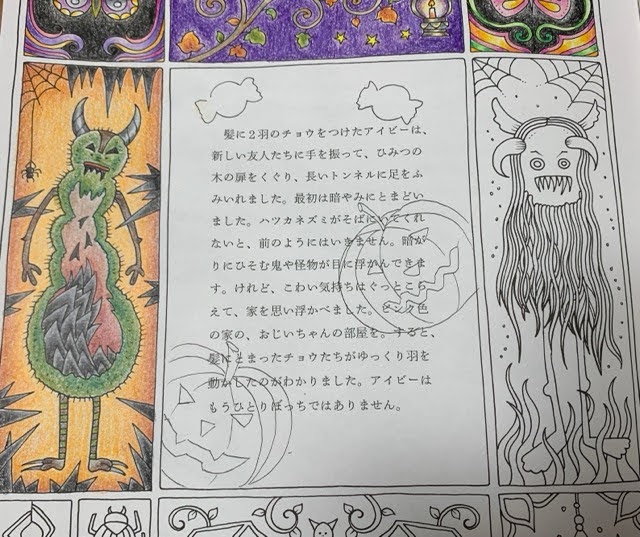 髪に２羽のチョウをつけたアイビーは、
新しい友人たちに手を振って、ひみつの
木の扉をくぐり、長いトンネルに足をふ
みいれました。最初は暗やみにとまどい
ました。ハツカネズミがそばにいてくれ
ないと、前のようにはいきません。暗が
りにひそむ鬼や怪物が目に浮かんできま
す。けれど、こわい気持ちはぐっとこら
えて、家を思い浮かべました。ピンク色
の家の、おじいちゃんの部屋を。すると、
髪にとまったチョウたちがゆっくり羽を
動かしたのがわかりました。アイビーは
もうひとりぼっちではありません。